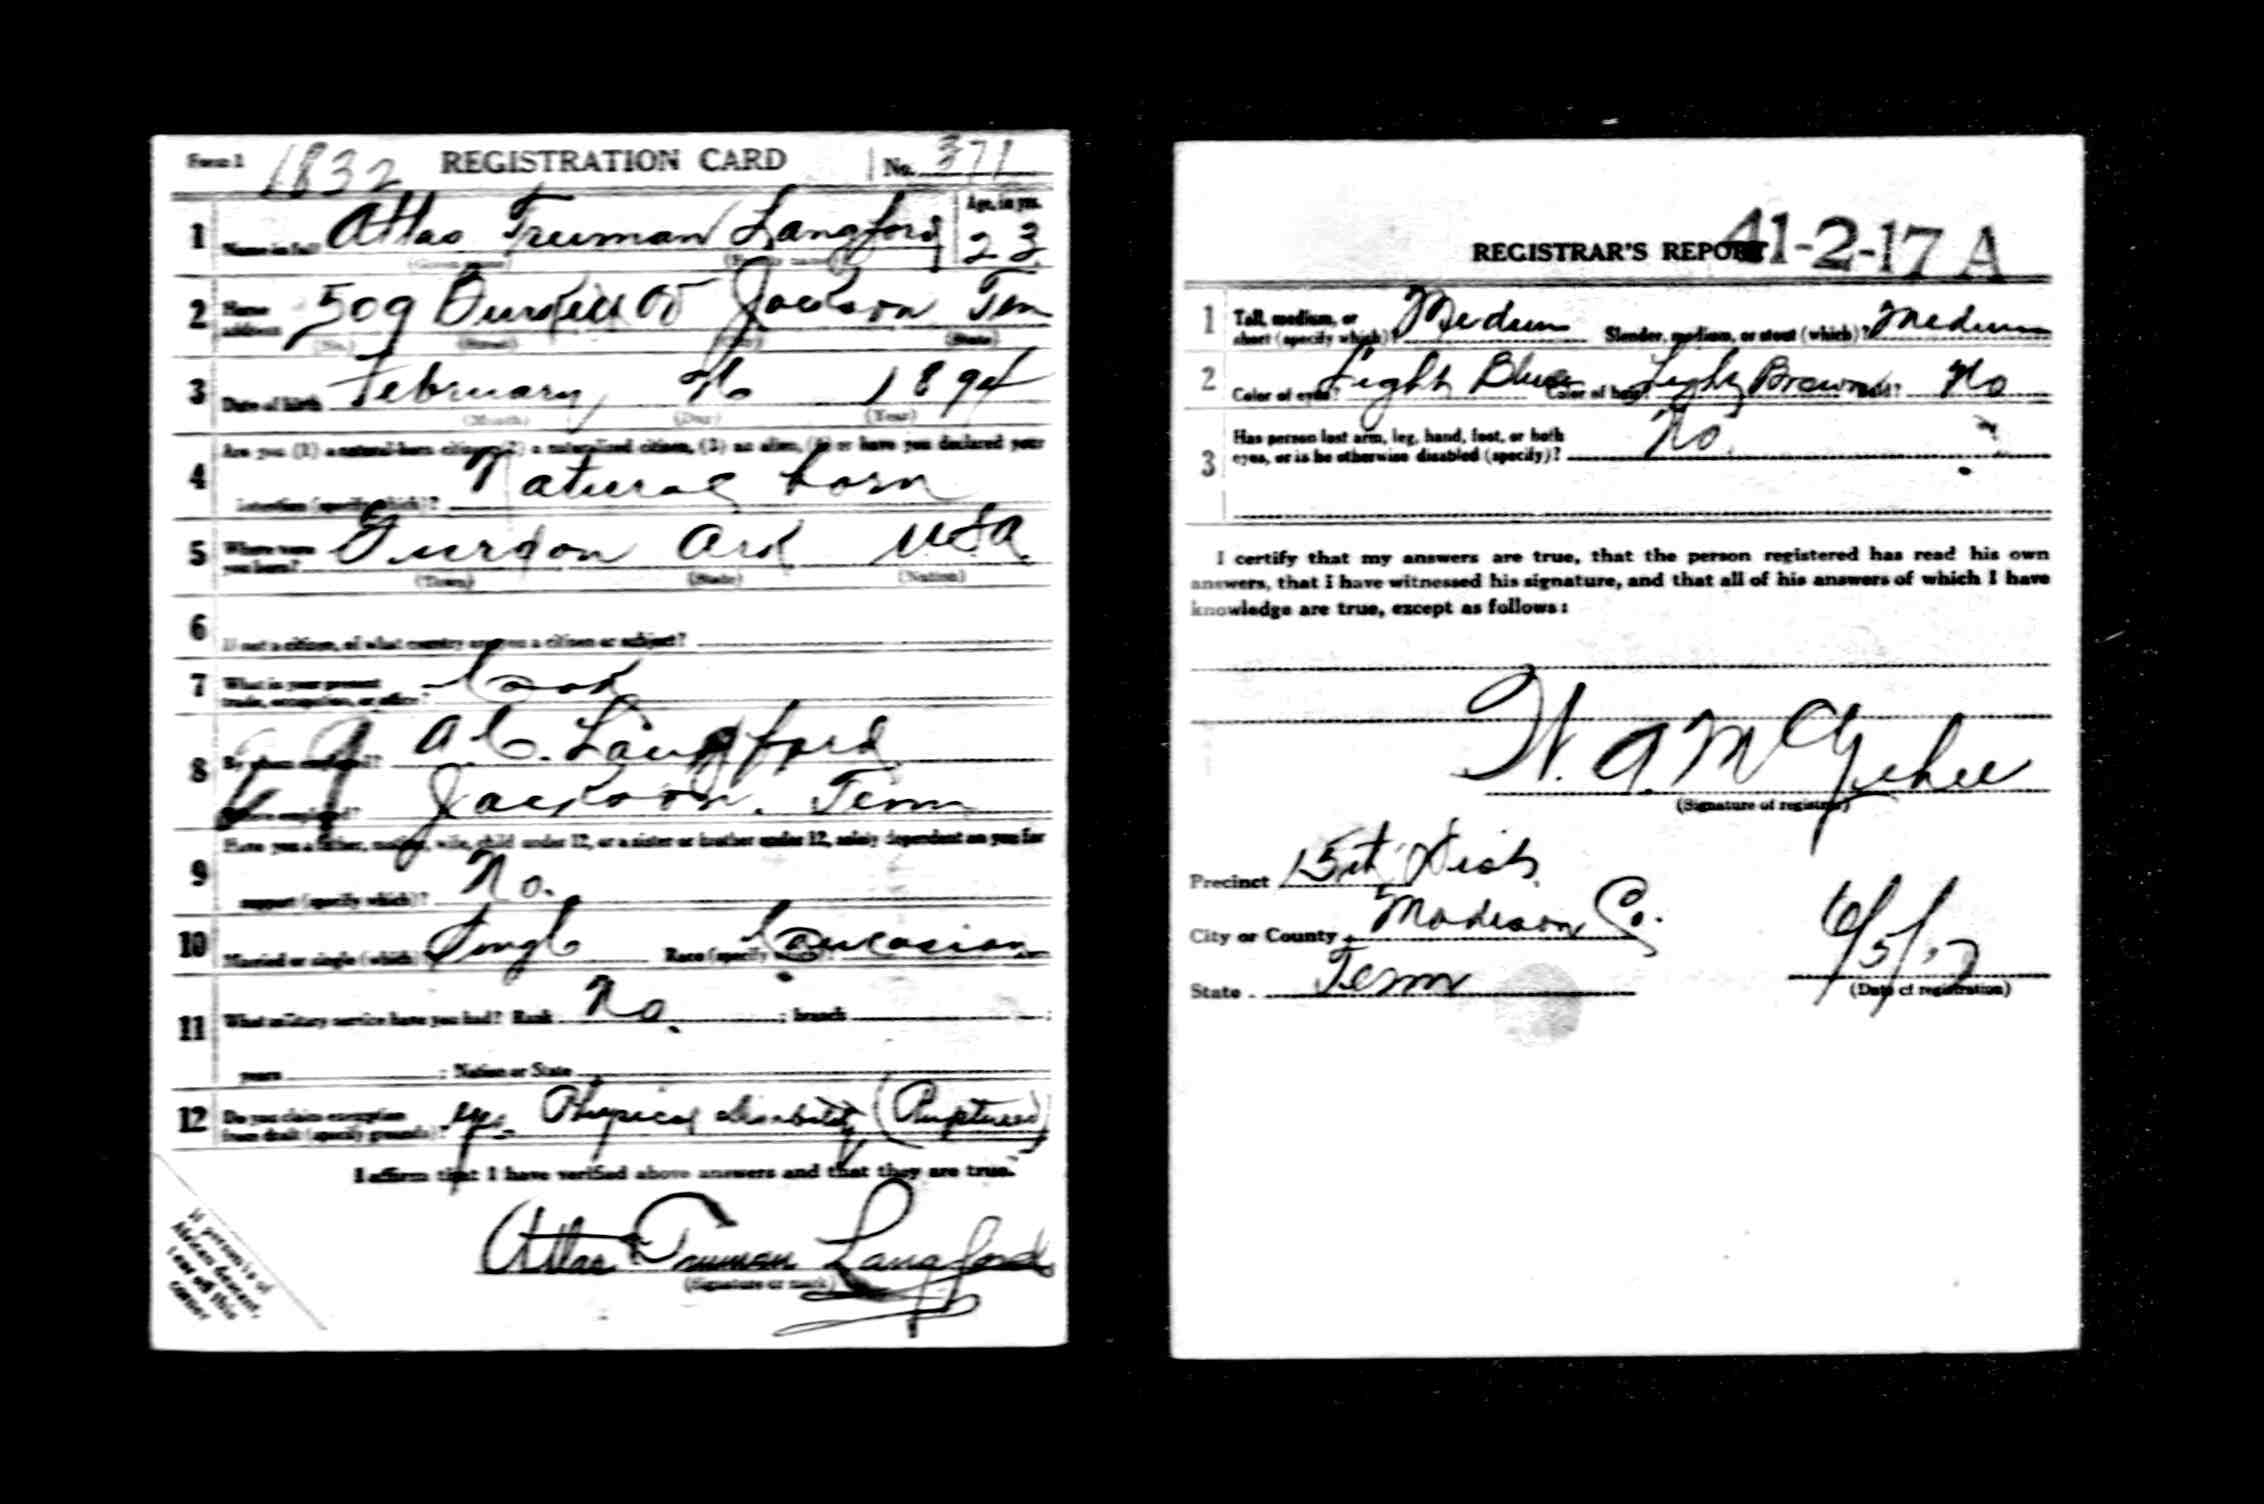 Form 1 1832 REGISTRATION CARD No. 371
1 Name in full Atlas Truman Langford Age, in yrs. 23
(Given name) (Family name)
2 Home address 509 Jackson Ten
(No.) (Street) (City) (State)
3 Date of birth February 1894
(Month) (Day) (Year)
4 Are you (1) a natural-born citizen, (2) a naturalized citizen, (3) an alien, (4) or have you declared your
intention (specify which)? Natural born
5 Where were you born? Gurdon Ark USA
(Town) (State) (Nation)
6 If not a citizen, of what country are you a citizen or subject?
7 What is your present trade, occupation, or office? Cook
8 By whom employed? A.C. Langford
Where employed? Jackson. Tenn
9 Have you a father, mother, wife, child under 12, or a sister or brother under 12, solely dependent on you for
support (specify which)? No.
10 Married or single (which)? Single Race (specify which)? Caucasian
11 What military service have you had? Rank No. ; branch ;
years ; Nation or State
12 Do you claim exemption from draft (specify grounds)? Yes. Physical disability (Ruptured)
I affirm that I have verified above answers and that they are true.
Atlas Truman Langford
(Signature or mark)
If person is of
African descent,
tear off this
corner
REGISTRAR'S REPORT 41-2-17 A
1 Tall, medium, or short (specify which)? Medium Slender, medium, or stout (which)? Medium
2 Color of eyes? Light Blue Color of hair? Light Brown Bald? No
3 Has person lost arm, leg, hand, foot, or both
eyes, or is he otherwise disabled (specify)? No.
I certify that my answers are true, that the person registered has read his own
answers, that I have witnessed his signature, and that all of his answers of which I have
knowledge are true, except as follows:
W. A. McGehee
(Signature of registrar)
Precinct 15th Dist.
City or County Madison Co.
State Tenn
6/5/17
(Date of registration)